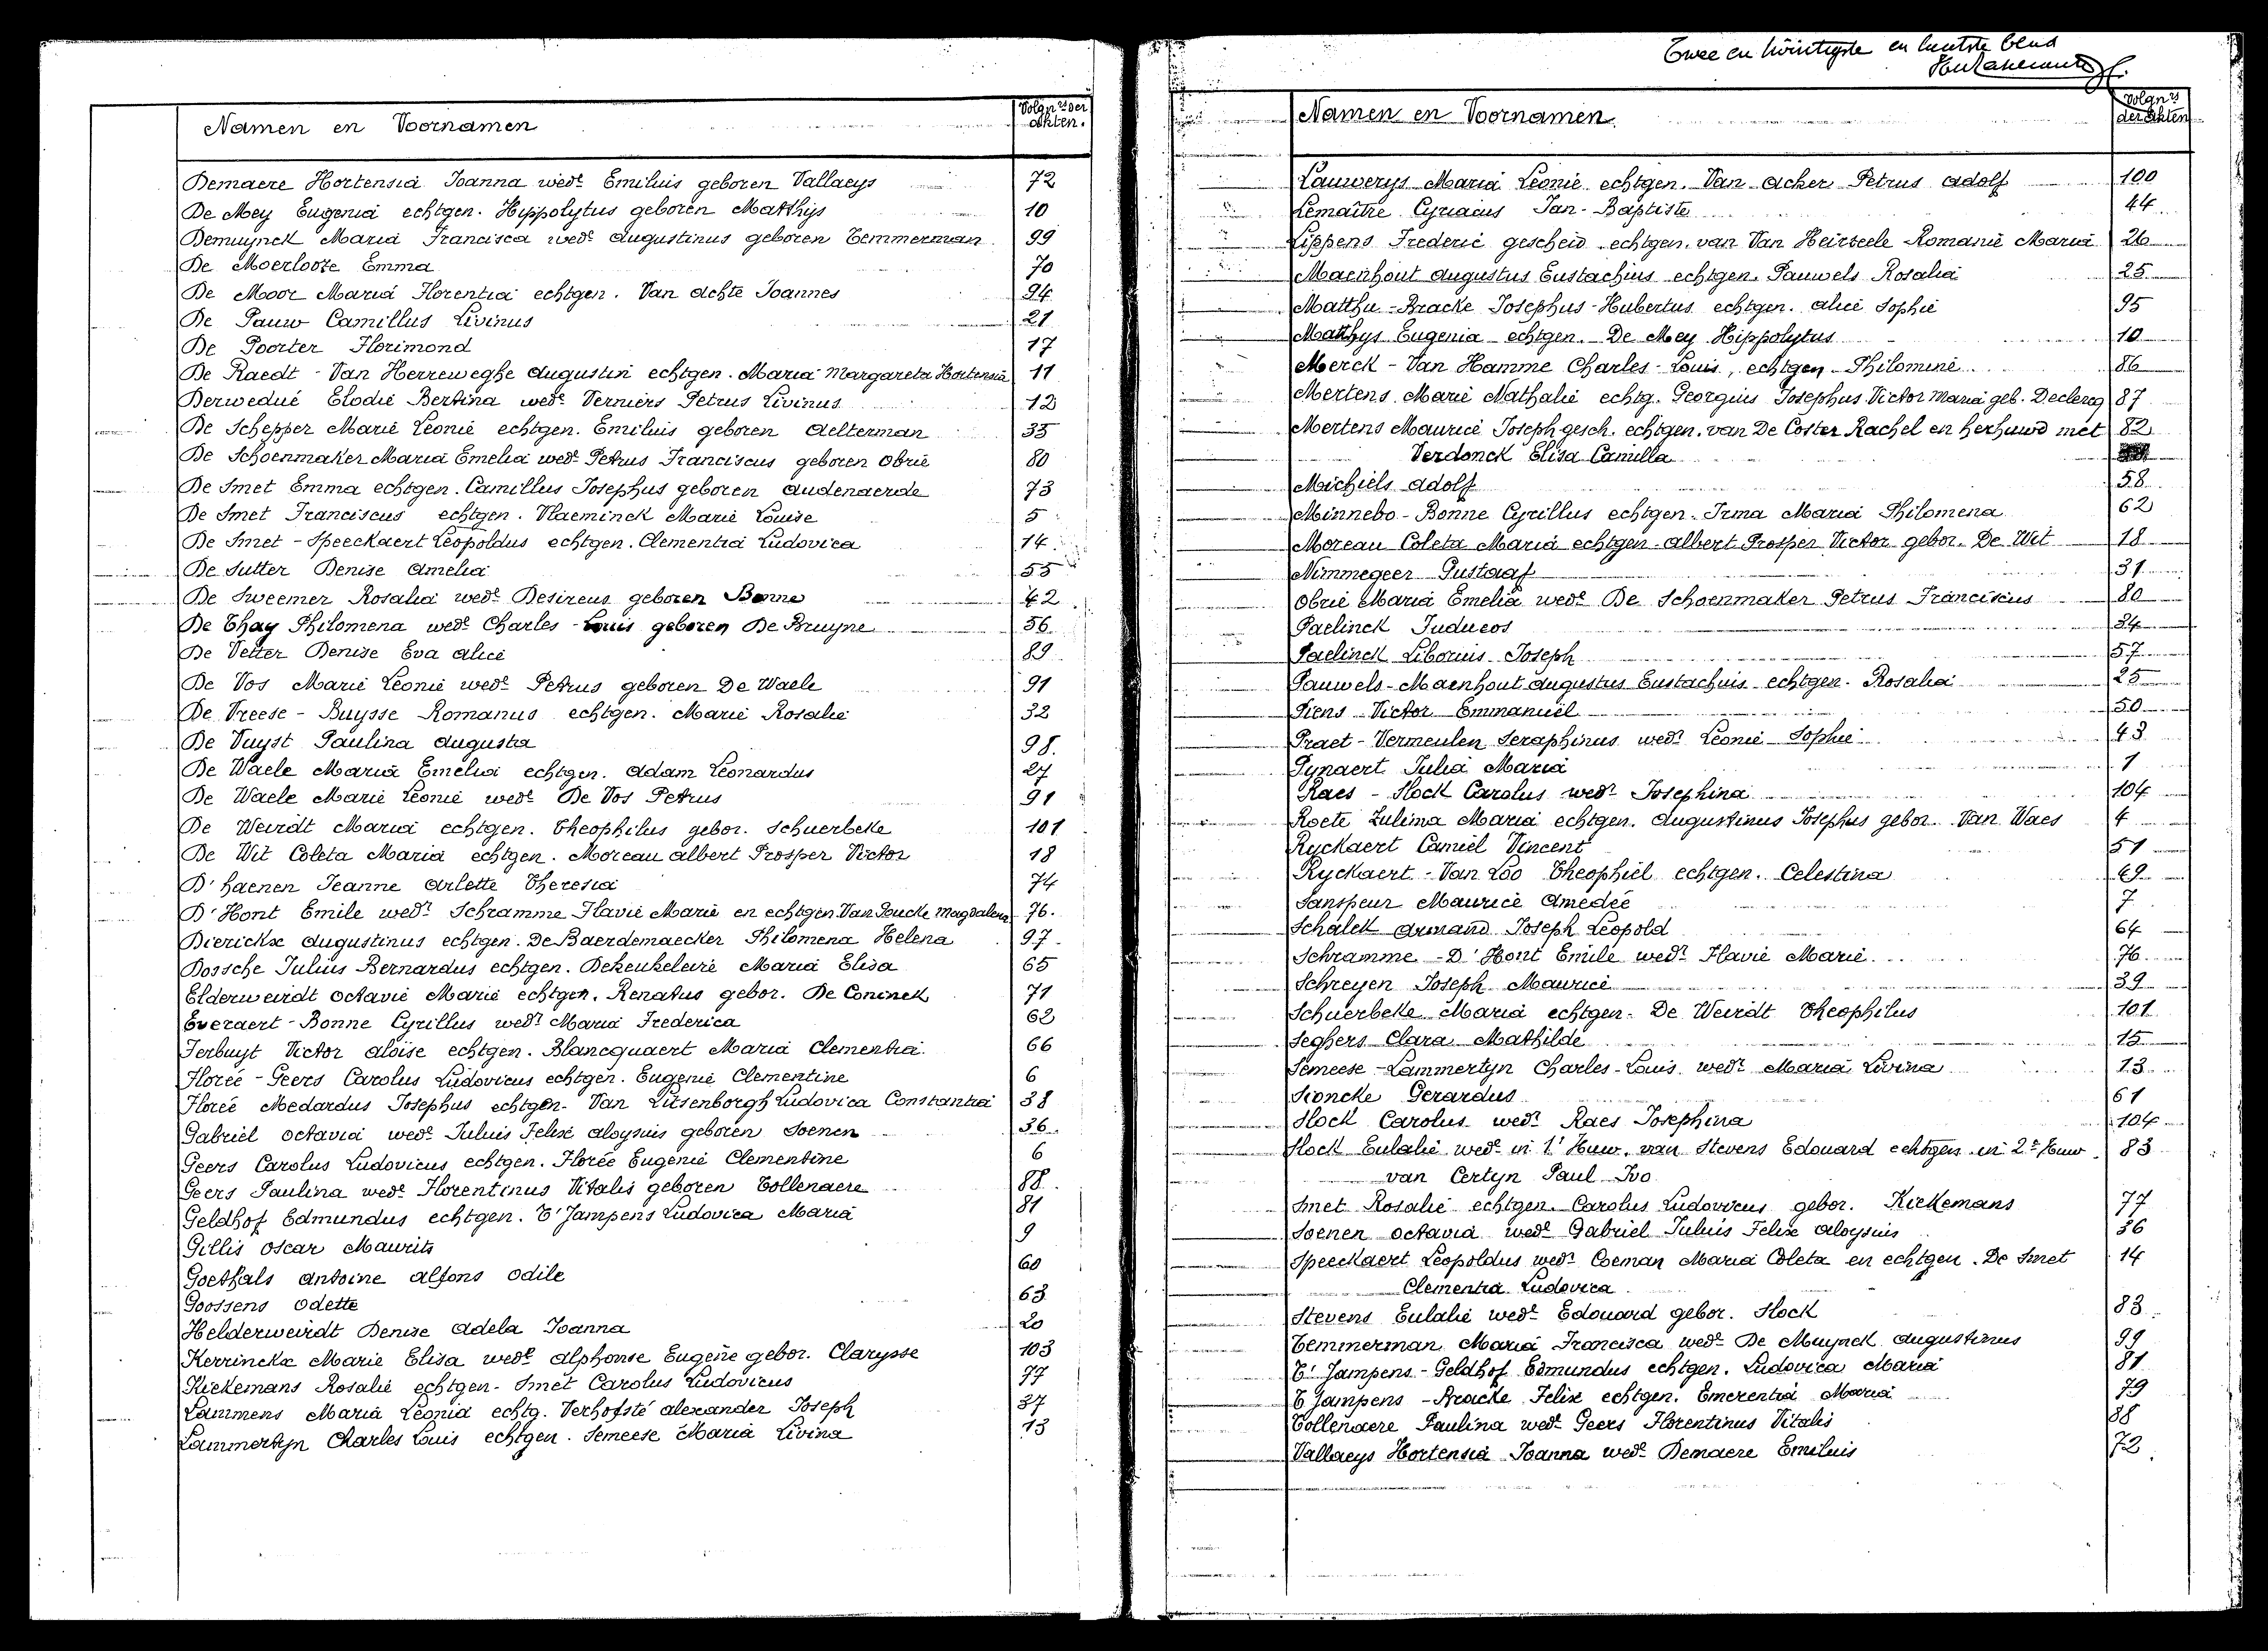 Namen en Voornamen Volgnrs der akten.
Demaere Hortensia Joanna wede Emilius geboren Vallaeys 72
De Mey Eugenia echtgen. Hippolytus geboren Matthijs 10
Demuynck Maria Francisca wede Augustinus geboren Temmerman 99
De Moerlooze Emma 70
De Moor Maria Florentia echtgen. Van Achte Joannes 94
De Pauw Camillus Livinus 21
De Poorter Florimond 17
De Raedt - Van Herreweghe Augustin echtgen. Maria Margareta Hortensia 11
Derwedué Elodie Bertina wede Verniers Petrus Livinus 12
De Schepper Marie Leonie echtgen. Emilius geboren Aelterman 35
De Schoenmaker Maria Emelia wede Petrus Franciscus geboren Obrie 80
De Smet Emma echtgen. Camillus Josephus geboren Audenaerde 73
De Smet Franciscus echtgen. Vlaeminck Marie Louise 5
De Smet - Speeckaert Leopoldus echtgen. Clementia Ludovica 14
De Sutter Denise Amelia 55
De Sweemer Rosalia wede Desireus geboren Bonne 42
De Thay Philomena wede Charles-Louis geboren De Bruyne 56
De Vetter Denise Eva Alice 89
De Vos Marie Leonie wede Petrus geboren De Waele 91
De Vreese - Buysse Romanus echtgen. Marie Rosalie 32
De Vuyst Paulina Augusta 98.
De Waele Maria Emelia echtgen. Adam Leonardus 27
De Waele Marie Leonie wede De Vos Petrus 91
De Weirdt Maria echtgen. Theophilus gebor. Schuerbeke 101
De Wit Coleta Maria echtgen. Moreau Albert Prosper Victor 18
D'haenen Jeanne Arlette Theresia 74
D'Hont Emile wedr Schramme Flavie Marie en echtgen. Van Poucke Magdalena 76.
Dierickx Augustinus echtgen. De Baerdemaecker Philomena Helena 97
Dossche Julius Bernardus echtgen. Dekeukeleire Maria Elisa 65
Elderweirdt Octavie Marie echtgen. Renatus gebor. De Coninck 71
Everaert - Bonne Cyrillus wedr Maria Frederica 62
Ferbuyt Victor Aloïse echtgen. Blancquaert Maria Clementia 66
Florée - Geers Carolus Ludovicus echtgen. Eugenie Clementine 6
Florée Medardus Josephus echtgen. Van Litsenborgh Ludovica Constantia 38
Gabriel Octavia wede Julius Felix Aloysius geboren Soenen 36.
Geers Carolus Ludovicus echtgen. Florée Eugenie Clementine 6
Geers Paulina wede Florentinus Vitalis geboren Tollenaere 88.
Geldhof Edmundus echtgen. T'Jampens Ludovica Maria 81
Gillis Oscar Maurits 9
Goethals Antoine Alfons Odile 60
Goossens Odette 63
Helderweirdt Denise Adela Joanna 20
Kerrinckx Marie Elisa wede Alphonse Eugène gebor. Clarysse 103
Kiekemans Rosalie echtgen. Smet Carolus Ludovicus 77
Lammens Maria Leonia echtg. Verhofsté Alexander Joseph 37
Lammertyn Charles Louis echtgen. Semeese Maria Livina 13
Twee en twintigste en laatste blad
Namen en Voornamen Volgnrs der akten
Lauwerys Maria Leonie echtgen. Van Acker Petrus Adolf 100
Lemaître Cyriacus Jan-Baptiste 44
Lippens Frederic gescheid. echtgen. van Van Heirseele Romanie Maria 26
Maenhout Augustus Eustachius echtgen. Pauwels Rosalia 25
Matthu - Bracke Josephus-Hubertus echtgen. Alice Sophie 95
Matthys Eugenia echtgen. De Mey Hippolytus 10
Merck - Van Hamme Charles-Louis, echtgen. Philomine 86
Mertens Marie Nathalie echtg. Georgius Josephus Victor Maria geb. Declercq 87
Mertens Maurice Joseph gesch. echtgen. van De Coster Rachel en herhuwd met 82
Verdonck Elisa Camilla
Michiels Adolf 58
Minnebo - Bonne Cyrillus echtgen. Irma Maria Philomena 62
Moreau Coleta Maria echtgen. Albert Prosper Victor gebor. De Wit 18
Nimmegeer Gustaaf 31
Obrie Maria Emelia wede De Schoenmaker Petrus Franciscus 80
Paelinck Judueos 34
Paelinck Liborius Joseph 57
Pauwels - Maenhout Augustus Eustachius echtgen. Rosalia 25
Piens Victor Emmanuël 50
Praet - Vermeulen Seraphinus wedr Leonie Sophie 43
Pynaert Julia Maria 1
Raes - Slock Carolus wedr Josephina 104
Roete Zulima Maria echtgen. Augustinus Josephus gebor. Van Waes 4
Ryckaert Camiel Vincent 51
Ryckaert - Van Loo Theophiel echtgen. Celestina 69
Sanspeur Maurice Amedée 7
Schalck Armand Joseph Leopold 64
Schramme - D'Hont Emile wedr Flavie Marie 76
Schreyen Joseph Maurice 39
Schuerbeke Maria echtgen. De Weirdt Theophilus 101
Seghers Clara Mathilde 15
Semeese - Lammertyn Charles-Louis wedr Maria Livina 13
Sioncke Gerardus 61
Slock Carolus wedr Raes Josephina 104
Slock Eulalie wede in 1e Huw. van Stevens Edouard echtgen. in 2e Huw. 83
van Certyn Paul Ivo
Smet Rosalie echtgen. Carolus Ludovicus gebor. Kiekemans 77
Soenen Octavia wede Gabriel Julius Felix Aloysius 36
Speeckaert Leopoldus wedr Coeman Maria Coleta en echtgen. De Smet 14
Clementia Ludovica
Stevens Eulalie wede Edouard gebor. Slock 83
Temmerman Maria Francisca wede De Muynck Augustinus 99
T'Jampens - Geldhof Edmundus echtgen. Ludovica Maria 81
T'Jampens - Bracke Felix echtgen. Emerentia Maria 79
Tollenaere Paulina wede Geers Florentinus Vitalis 88
Vallaeys Hortensia Joanna wede Demaere Emilius 72